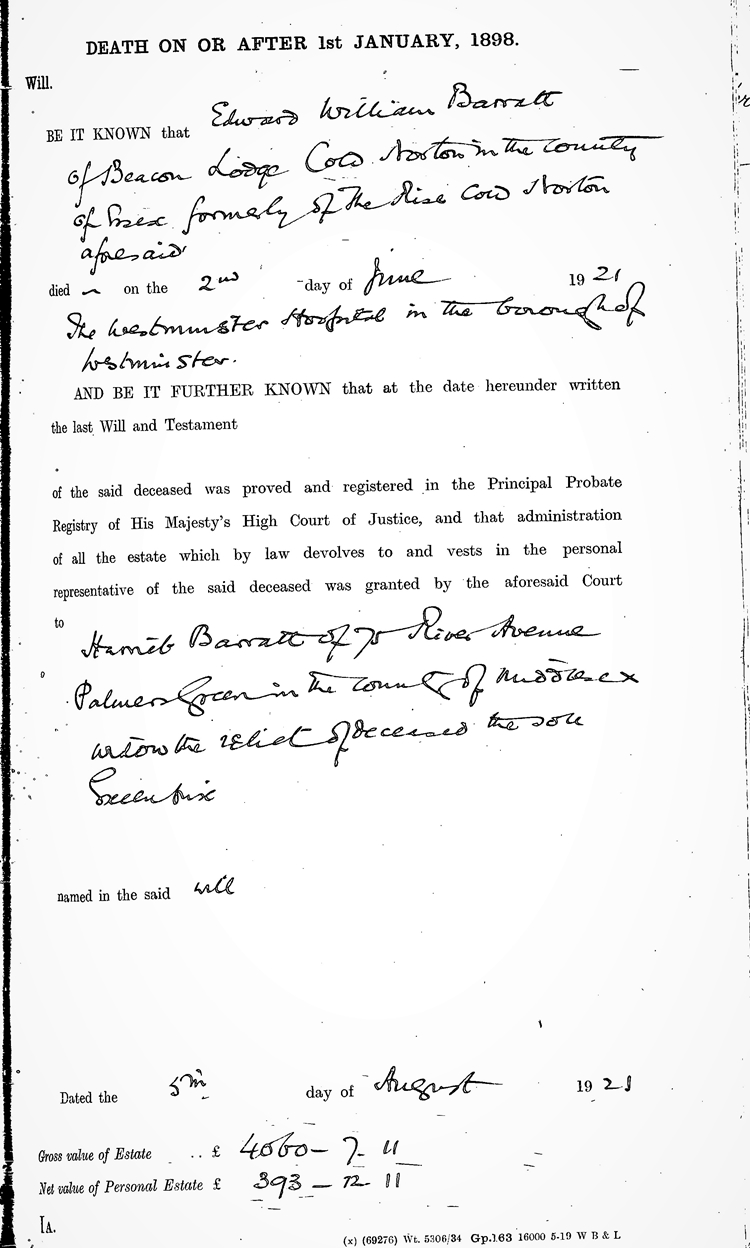 DEATH ON OR AFTER 1st JANUARY, 1898.
Will.
BE IT KNOWN that Edward William Barratt
of Beacon Lodge Cold Norton in the county
of Essex formerly of The Rise Cold Norton
aforesaid
died on the 2nd day of June 1921
The Westminster Hospital in the borough of
Westminster.
AND BE IT FURTHER KNOWN that at the date hereunder written
the last Will and Testament
of the said deceased was proved and registered in the Principal Probate
Registry of His Majesty's High Court of Justice, and that administration
of all the estate which by law devolves to and vests in the personal
representative of the said deceased was granted by the aforesaid Court
to
Harriet Barratt of River Avenue
Palmers Green in the county of Middlesex
widow the relict of deceased the sole
Executrix
named in the said will
Dated the 5th day of August 1921
Gross value of Estate .. £ 4060 - 7 - 11
Net value of Personal Estate £ 393 - 12 - 11
IA.
(x) (69276) Wt. 5306/34 Gp.163 16000 5-19 W B & L